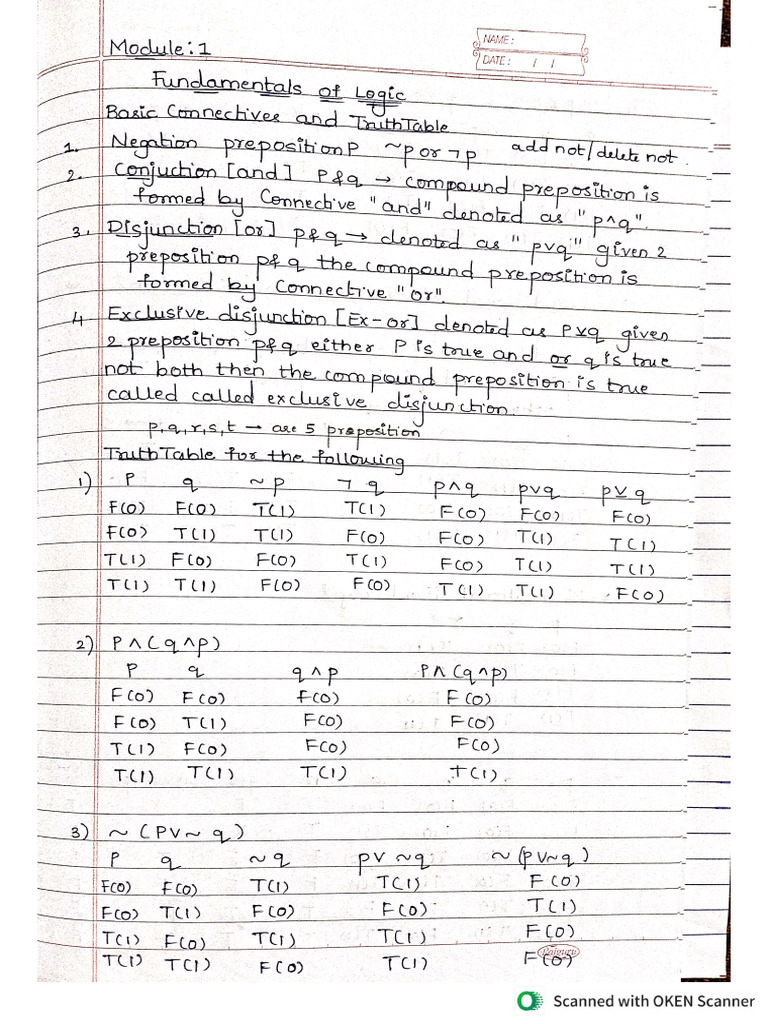 NAME:
DATE: / /
Module:1
Fundamentals of Logic
Basic Connectives and TruthTable
1. Negation preposition P ~p or ¬p add not/delete not.
2. Conjuction [and] P & q → compound preposition is
formed by Connective "and" denoted as "p∧q".
3. Disjunction [or] p & q → denoted as "p∨q" given 2
preposition p & q the compound preposition is
formed by Connective "or".
4 Exclusive disjunction [Ex-or] denoted as P⊻q given
2 preposition p & q either P is true and or q is true
not both then the compound preposition is true
called called exclusive disjunction.
p,q,r,s,t → are 5 preposition
TruthTable for the following
1) P q ~p ¬q p∧q p∨q p⊻q
F(0) F(0) T(1) T(1) F(0) F(0) F(0)
F(0) T(1) T(1) F(0) F(0) T(1) T(1)
T(1) F(0) F(0) T(1) F(0) T(1) T(1)
T(1) T(1) F(0) F(0) T(1) T(1) F(0)
2) P∧(q∧p)
P q q∧p P∧(q∧p)
F(0) F(0) F(0) F(0)
F(0) T(1) F(0) F(0)
T(1) F(0) F(0) F(0)
T(1) T(1) T(1) T(1)
3) ~(P∨~q)
P q ~q p∨~q ~(p∨~q)
F(0) F(0) T(1) T(1) F(0)
F(0) T(1) F(0) F(0) T(1)
T(1) F(0) T(1) T(1) F(0)
T(1) T(1) F(0) T(1) F(0)
Scanned with OKEN Scanner